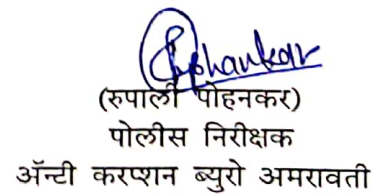 (रुपाली पोहनकर)
पोलीस निरीक्षक
ॲन्टी करप्शन ब्युरो अमरावती